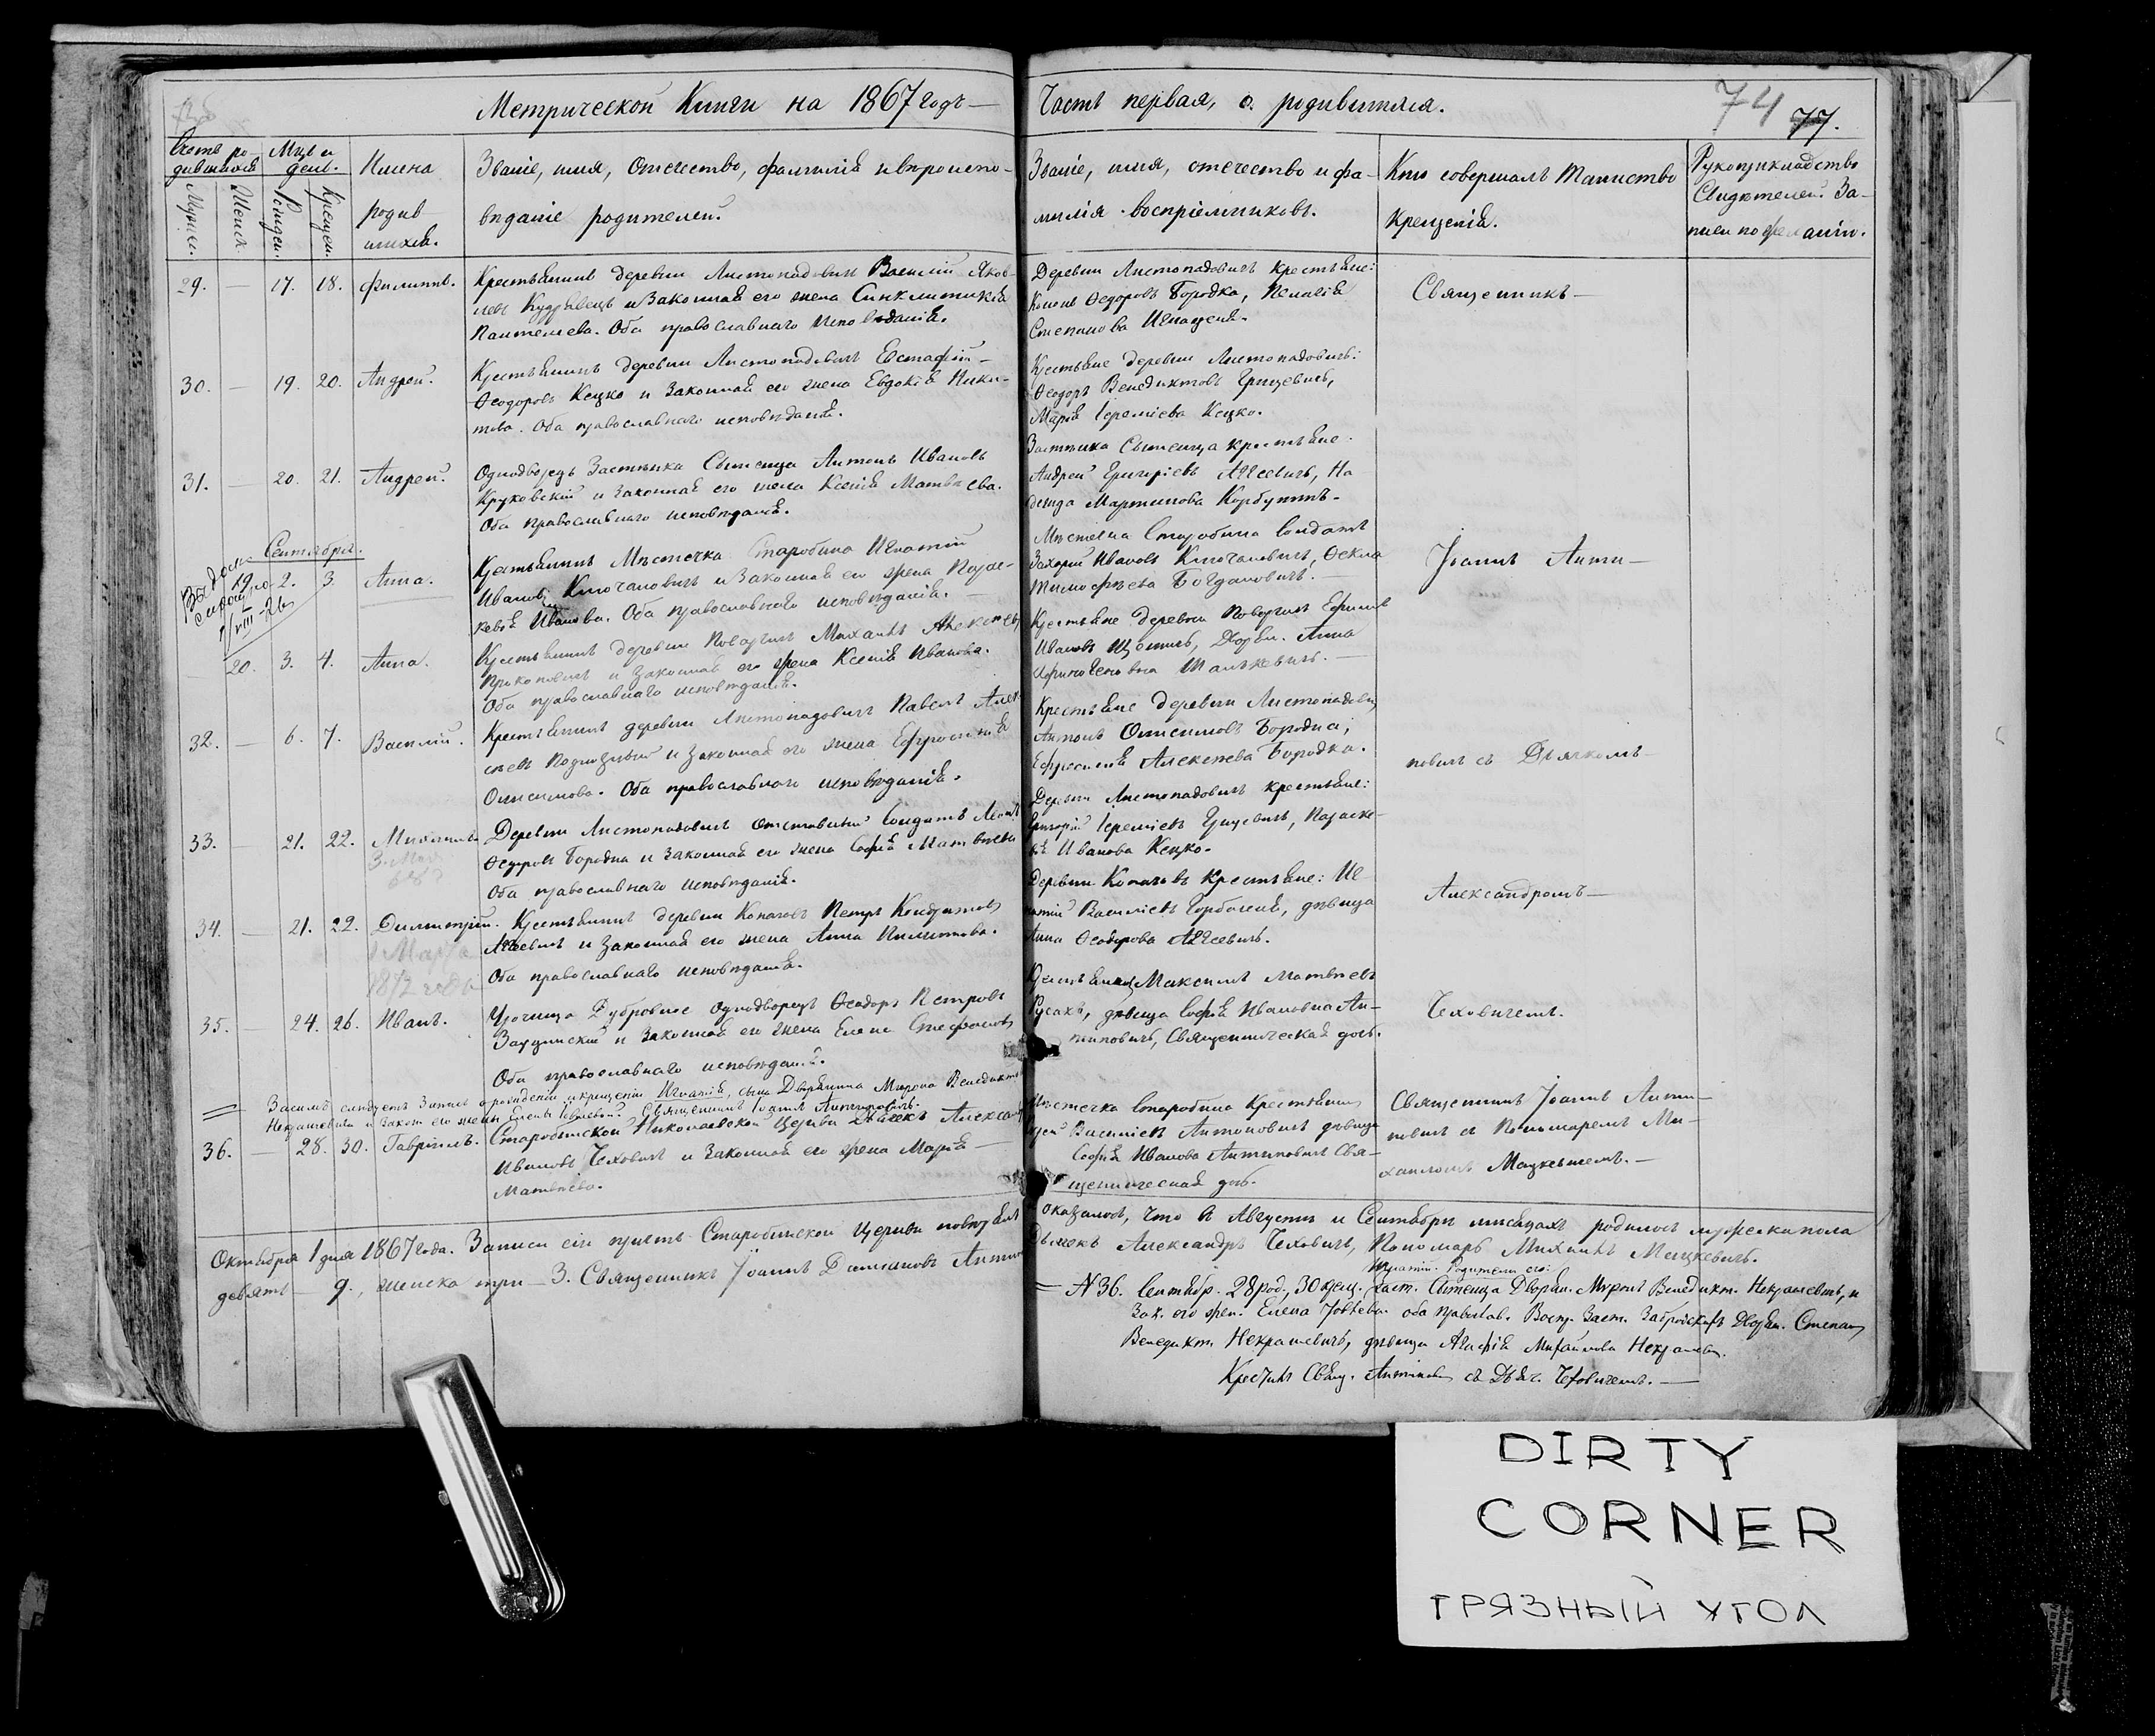 Метрической Книги на 1867 годъ —
Часть первая, о родившихся.
74
77.
Счетъ ро-
дившихся
Мужеск.
Женск.
Мцъ и
день.
Рожден.
Крещен.
Имена
родив
шихся.
Званіе, имя, отечество, фамилія и вѣроиспо-
вѣданіе родителей.
Званіе, имя, отечество и фа-
милія воспріемниковъ.
Кто совершалъ Таинство
Крещенія.
Рукоприкладство
Свидѣтелей За-
писи по желанію.
29. — 17. 18. Филиппъ.
Крестьянинъ деревни Листопадовичъ Василій Яков-
левъ Кудрявецъ и Законная его жена Синклитикія
Пантелеева. Оба православнаго исповѣданія.
Деревни Листопадовичъ крестьяне:
Ѳедоровъ Бородка, Пелагія
Степанова Игнаценя.
Священникъ —
30. — 19. 20. Андрей.
Крестьянинъ деревни Листопадовичъ Евстафій —
Ѳеодоровъ Кецко и Законная его жена Евдокія Ники-
това. Оба православнаго исповѣданія.
Крестьяне деревни Листопадовичъ:
Ѳеодоръ Венедиктовъ Грицевичъ,
Марія Іереміева Кецко.
31. — 20. 21. Андрей.
Однодворецъ Застѣнка Сытеица Антонъ Ивановъ
Круковскій и Законная его жена Ксенія Матвѣева.
Оба православнаго исповѣданія.
Застѣнка Сытеица крестьяне:
Андрей Григоріевъ Агѣевичъ, На
дежда Мартинова Корбутъ.
Сентября.
19. 2. 3. Анна.
Крестьянинъ Мѣстечка Старобина Игнатій
Ивановъ Ключановичъ и Законная его жена Парас-
кевія Иванова. Оба православнаго исповѣданія.
Мѣстечка Старобина Солдатъ
Захарій Ивановъ Ключановичъ, Ѳекла
Тимоѳѣева Богдановичъ.
Іоаннъ Анти —
20. 3. 4. Анна.
Крестьянинъ деревни Поварчицъ Михаилъ Алексѣевъ
Прокоповичъ и Законная его жена Ксенія Иванова.
Оба православнаго исповѣданія.
Крестьяне деревни Поварчицъ Ефимъ
Ивановъ Дворян. Анна
32. — 6. 7. Василій.
Крестьянинъ деревни Листопадовичъ Павелъ Алек-
сѣевъ и Законная его жена Ефросинія
Онисимова. Оба православнаго исповѣданія.
Крестьяне деревни Листопадовичъ
Антонъ Онисимовъ Бородка,
Ефросинія Алексѣева Бородка.
повичъ съ Дьячкомъ —
33. — 21. 22. Михаилъ.
Деревни Листопадовичъ отставной Солдатъ
Ѳедоровъ Бородка и Законная его жена Софія Матвѣева
Оба православнаго исповѣданія.
Деревни Листопадовичъ крестьяне:
Григорій Іереміевъ Грицевичъ, Параске-
вія Иванова Кецко.
34. — 21. 22. Димитрій.
1 Марта
1872 года
Крестьянинъ деревни Копачовъ Петръ Кондратовъ
Агѣевичъ и Законная его жена Анна Филиппова.
Оба православнаго исповѣданія.
Деревни Копачовъ крестьяне: Иг-
натій Василіевъ Горбаченя, дѣвица
Анна Ѳеодорова Агѣевичъ.
Александромъ —
35. — 24. 26. Иванъ.
Урочища Дубровное однодворецъ Ѳеодоръ Петровъ
и Законная его жена Елена Стефанова
Оба православнаго исповѣданія.
Крестьянинъ Максимъ Матвѣевъ
Русакъ, дѣвица Софія Ивановна Ан-
типовичъ, Священническая дочь.
Чеховичемъ.
Засимъ слѣдуетъ Запись о рожденіи и крещеніи Игнатія, сына Дворянина Мирона Венедиктова
Некрашевича и Закон. его жены Елены Іовлевой. Священникъ Іоаннъ Антиповичъ.
36. — 28. 30. Гавріилъ.
Старобинской Николаевской Церкви Дьячекъ Александръ
Ивановъ Чеховичъ и Законная его жена Марія —
Матвѣева.
Мѣстечка Старобина Крестьянинъ
Василіевъ Антоновичъ дѣвица
Софія Иванова Антиповичъ Свя-
щенническая дочь.
Священникъ Іоаннъ Анти —
повичъ съ Пономаремъ Ми —
хаиломъ Мацкевичемъ. —
Октября 1 дня 1867 года. Записи сіи причтъ Старобинской Церкви повѣрялъ
оказалось, что въ Августѣ и Сентябрѣ мѣсяцахъ родилось мужеска пола
девять — 9., женска три — 3. Священникъ Іоаннъ Даміановъ Антиповичъ
Дьячекъ Александръ Чеховичъ, Пономарь Михаилъ Мацкевичъ.
Игнатій. Родители его:
= N 36. Сентябр. 28 род., 30 крещ. Заст. Сытеица Дворян. Миронъ Венедикт. Некрашевичъ, и
Зак. его жен. Елена Іовлева. оба правосл. Воспр. Заст. Дворян. Степанъ
Венедикт. Некрашевичъ, дѣвица Агафія Михайлова Некрашевич.
Крестилъ Свящ. Антипович съ Дьяч. Чеховичемъ. —
DIRTY
CORNER
ГРЯЗНЫЙ УГОЛ